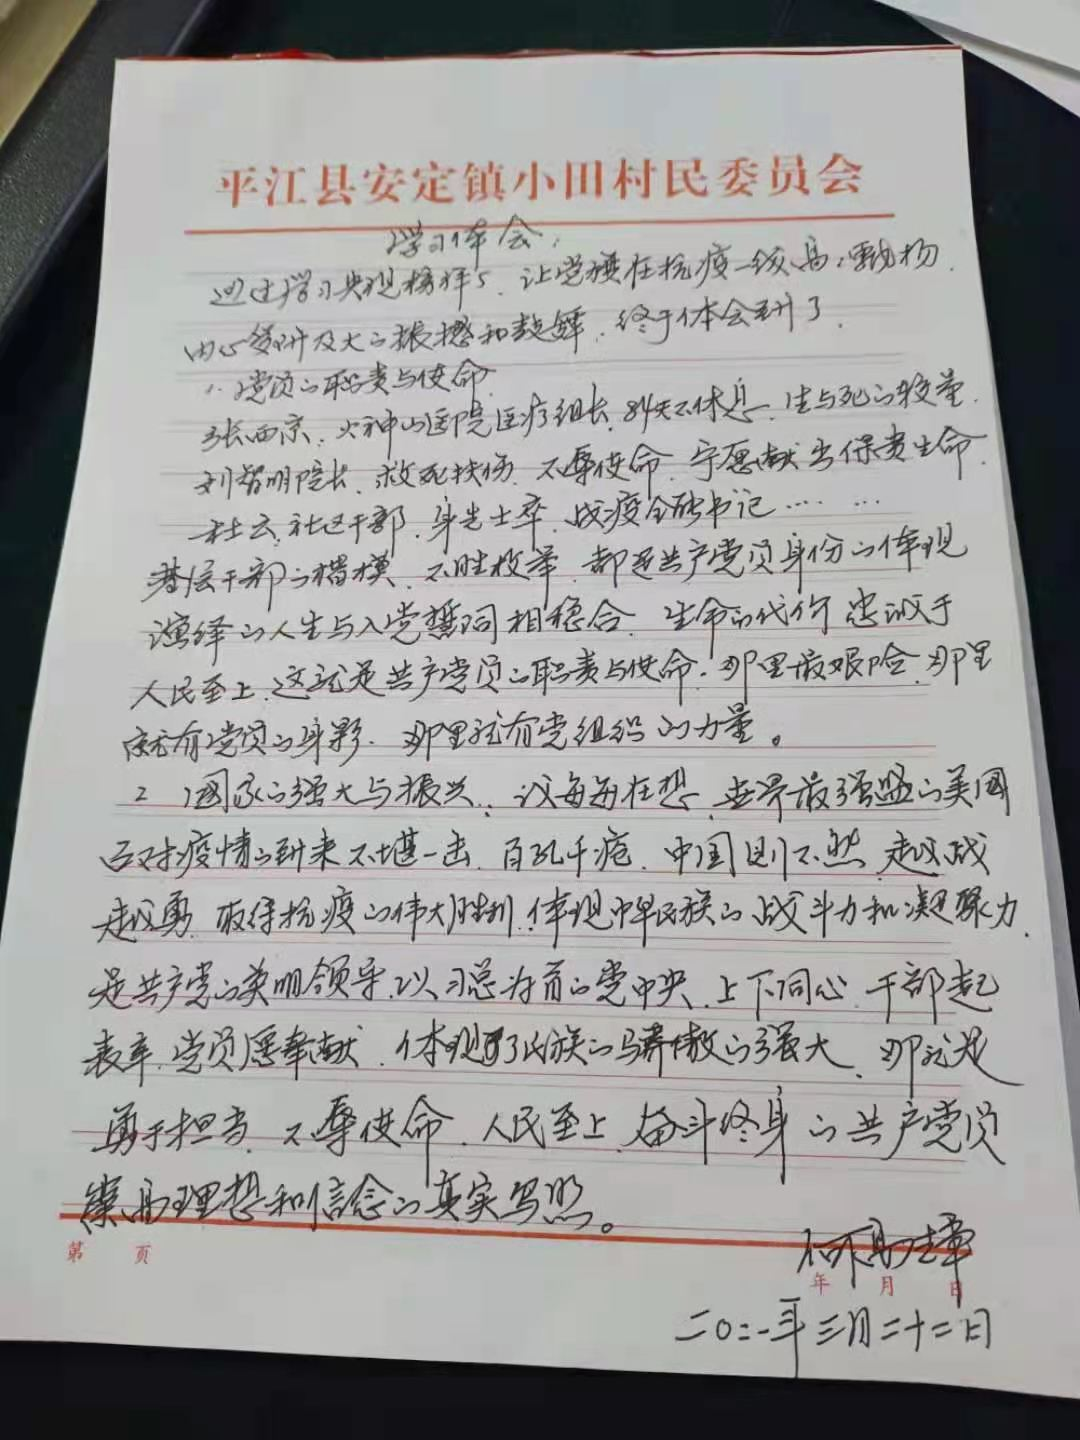 平江县安定镇小田村民委员会
学习体会
通过学习央视榜样5，让党旗在抗疫一线高高飘扬，
内心受到及大的振撼和鼓舞，终于体会到了，
1、党员的职责与使命
张西京，火神山医院医疗组长，84天不休息，生与死的较量，
刘智明院长，救死扶伤，不辱使命，宁愿献出保贵生命，
杜云，社区干部，身先士卒，战疫全能书记……
基层干部的楷模，不胜枚举，都是共产党员身份的体现
演绎的人生与入党誓词相稳合，生命的代价忠诚于
人民至上，这就是共产党员的职责与使命。那里最艰险，那里
就有党员的身影，那里就有党组织的力量。
2 国家的强大与振兴，议每每在想，世界最强盛的美国
面对疫情的到来不堪一击，百孔千疮，中国则不然，越战
越勇，取得抗疫的伟大胜利，体现中华民族的战斗力和凝聚力，
是共产党的英明领导，以习总为首的党中央，上下同心，干部起
表率，党员愿奉献，体现了民族的骄傲的强大，那就是
勇于担当，不辱使命，人民至上，奋斗终身的共产党员
崇高理想和信念的真实写照。
第 页
年 月 日
二〇二一年三月二十二日